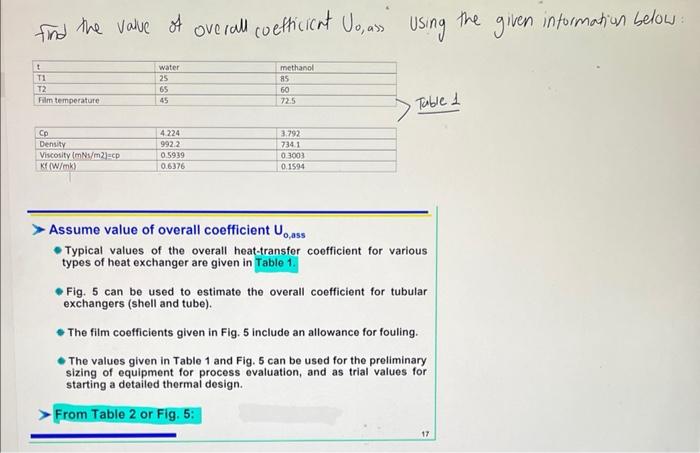 find the value of overall coefficient Uo,ass Using the given information below:
t water methanol
T1 25 85
T2 65 60
Film temperature 45 72.5
Table 1
Cp 4.224 3.792
Density 992.2 734.1
Viscosity (mNs/m2)=cp 0.5939 0.3003
Kf (W/mk) 0.6376 0.1594
➢ Assume value of overall coefficient Uo,ass
Typical values of the overall heat-transfer coefficient for various
types of heat exchanger are given in Table 1.
Fig. 5 can be used to estimate the overall coefficient for tubular
exchangers (shell and tube).
The film coefficients given in Fig. 5 include an allowance for fouling.
The values given in Table 1 and Fig. 5 can be used for the preliminary
sizing of equipment for process evaluation, and as trial values for
starting a detailed thermal design.
➢ From Table 2 or Fig. 5:
17